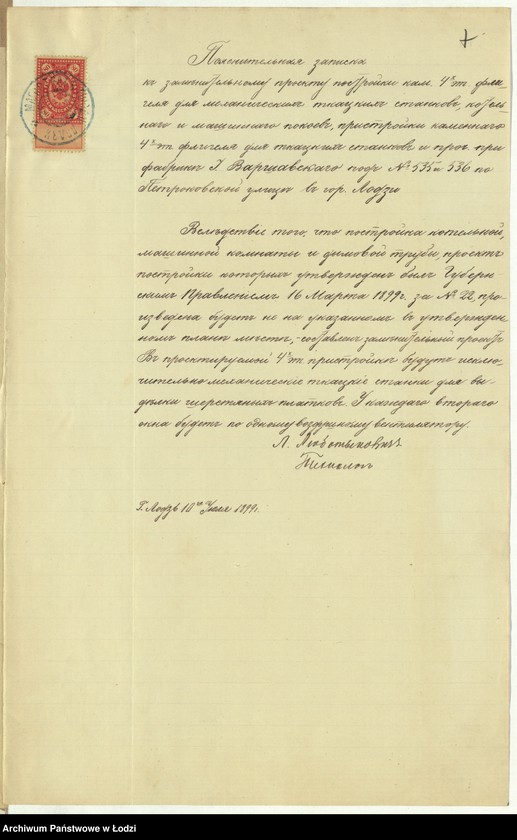 Пояснительная записка
къ замѣнительному проекту постройки кам. 4хъ эт. фли-
геля для механическихъ ткацкихъ станковъ, котель-
наго и машиннаго покоевъ, пристройки каменнаго
4хъ эт. флигеля для ткацкихъ станковъ и проч. при
фабрикѣ І. Варшавскаго подъ №535 и 536 по
Петроковской улицѣ въ гор. Лодзи
Вслѣдствіе того, что постройка котельной,
машинной комнаты и дымовой трубы, проектъ
постройки которыхъ утвержденъ былъ Губерн-
скимъ Правленіемъ 16 Марта 1899 г. за №22, про-
изведена будетъ не на указанномъ въ утвержден-
номъ планѣ мѣстѣ, составленъ замѣнительный проектъ
Въ проектируемой 4хъ эт. пристройкѣ будутъ исклю-
чительно механическіе ткацкіе станки для вы-
дѣлки шерстяныхъ платковъ. У каждаго втораго
окна будетъ по одному воздушному вентилятору.
Г. Лодзь 10го Іюля 1899 г.
Archiwum Państwowe w Łodzi